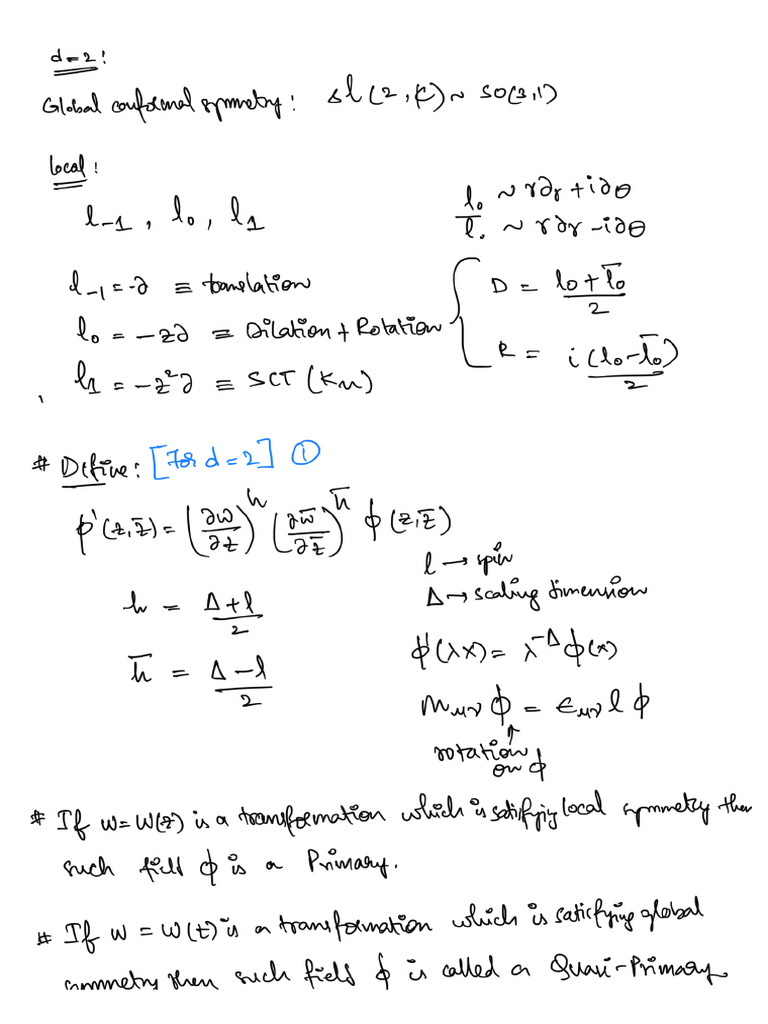 d=2:
Global conformal symmetry: sl(2,C) ~ SO(3,1)
local:
l₋₁, l₀, l₁
l₀ ~ r∂r + i∂θ
l̄. ~ r∂r - i∂θ
l₋₁ = -∂ ≡ translation
l₀ = -z∂ ≡ Dilation + Rotation
l₁ = -z²∂ ≡ SCT (Kμ)
D = (l₀ + l̄₀)/2
R = i(l₀ - l̄₀)/2
# Define: [For d=2] ①
ϕ'(z,z̄) = (∂w/∂z)^h (∂w̄/∂z̄)^h̄ ϕ(z,z̄)
h = (Δ+l)/2
h̄ = (Δ-l)/2
l → spin
Δ → scaling dimension
ϕ'(λx) = λ^-Δ ϕ(x)
Mμν ϕ = ϵμν l ϕ
↑
rotation
on ϕ
# If w=w(z) is a transformation which is satisfying local symmetry then
such field ϕ is a Primary.
# If w = w(t) is a transformation which is satisfying global
symmetry then such field ϕ is called a Quasi-Primary